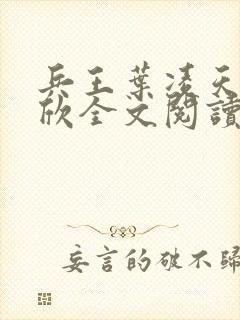 兵王葉凌天
欣全文閱讀
妄言的破不歸